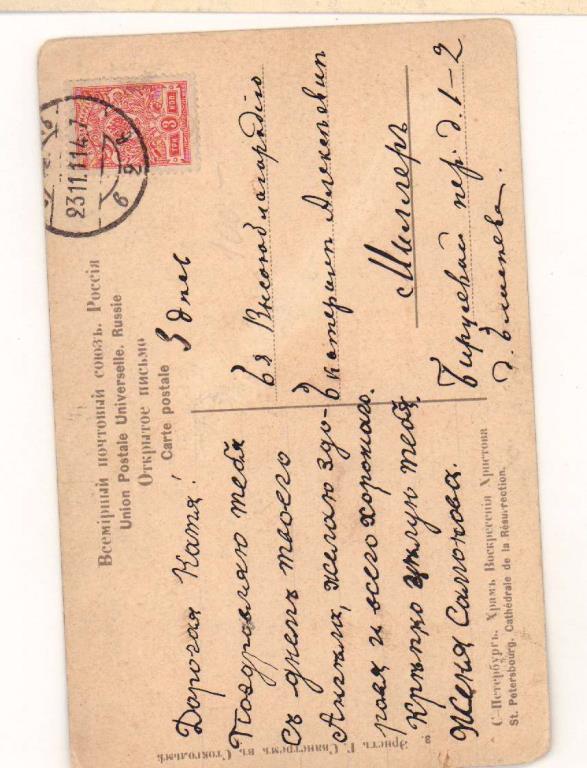 Всемірный почтовый союзъ. Россія
Union Postale Universelle. Russie
Открытое письмо
Carte postale
23 11 11 14
ТРИ 3 КОП
Здѣсь
Ея Высокоблагородію
Екатеринѣ Алексѣевнѣ
Миллеръ
пер. д. 1-2
Дорогая Катя!
Поздравляю тебя
съ днемъ твоего
Ангела, желаю здо-
ровья и всего хорошаго.
Крѣпко цѣлую тебя
Женя
С.-Петербургъ. Храмъ Воскресенія Христова
St. Petersbourg. Cathédrale de la Résurrection.
Эрнстъ Г. Сванстремъ въ Стокгольмѣ